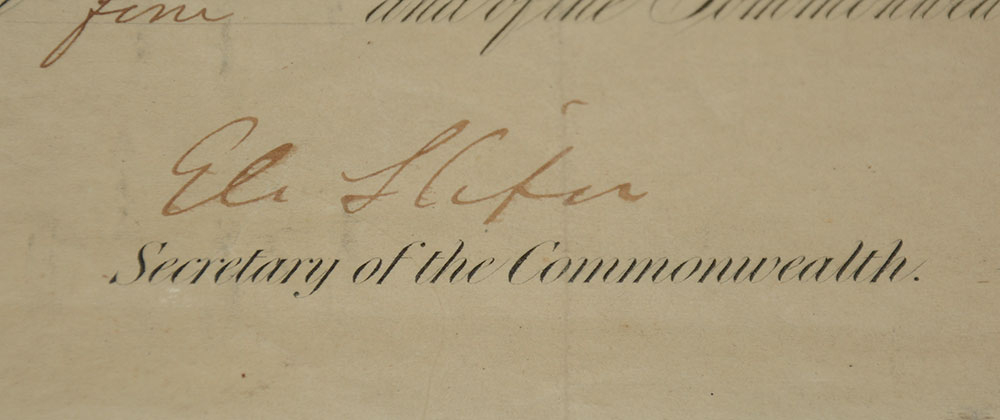 five and of the Commonwea
Eli Slifer
Secretary of the Commonwealth.